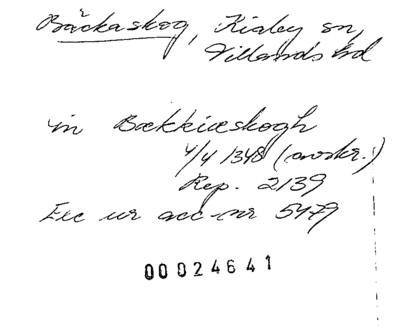 Bäckaskog, Kiaby sn,
Villands hd
in Bækkiæskogh
4/4 1348 (avskr.)
Rep. 2139
Exc ur acc-nr 5479
00024641